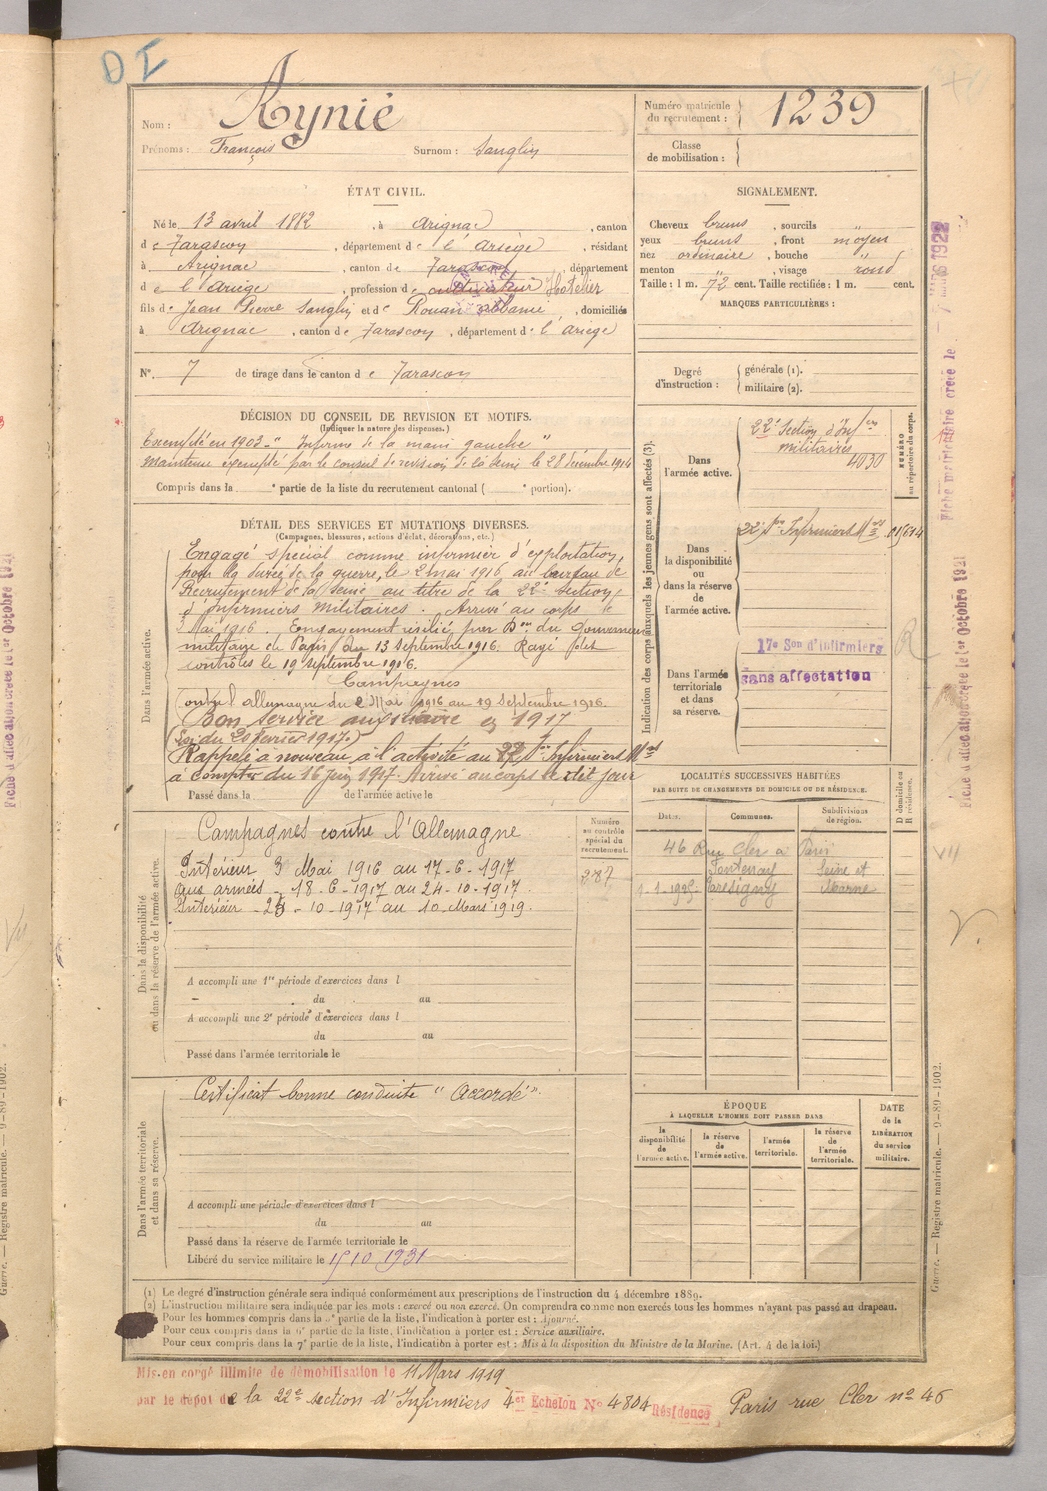 DI
Nom : Aynié
Prénoms : François Surnom : Sanglin
Numéro matricule du recrutement : 1239
Classe de mobilisation :
ÉTAT CIVIL.
Né le 13 avril 1882, à Arignac, canton
de Tarascon, département de l'Ariège, résidant
à Arignac, canton de Tarascon, département
de l'Ariège, profession de cultivateur Hotelier
fils de Jean Pierre Sanglin et de Rouan Albanie, domiciliés
à Arignac, canton de Tarascon, département de l'Ariège
N° 7 de tirage dans le canton de Tarascon
SIGNALEMENT.
Cheveux bruns, sourcils "
yeux bruns, front moyen
nez ordinaire, bouche "
menton ", visage rond
Taille : 1 m. 72 cent. Taille rectifiée : 1 m. cent.
MARQUES PARTICULIÈRES :
Degré d'instruction : générale (1).
militaire (2).
DÉCISION DU CONSEIL DE REVISION ET MOTIFS.
(Indiquer la nature des dispenses.)
Exempté en 1903 - "Infirme de la main gauche"
Maintenu exempté par le conseil de revision de la Seine le 28 décembre 1914
Compris dans la e partie de la liste du recrutement cantonal ( e portion).
DÉTAIL DES SERVICES ET MUTATIONS DIVERSES.
(Campagnes, blessures, actions d'éclat, décorations, etc.)
Dans l'armée active.
Engagé spécial comme infirmier d'exploitation,
pour la durée de la guerre, le 2 mai 1916 au bureau de
Recrutement de la Seine au titre de la 22e Section
d'Infirmiers Militaires. Arrivé au corps le
3 Mai 1916. Engagement résilié par Don du Gouverneur
militaire de Paris du 13 Septembre 1916. Rayé des
contrôles le 19 Septembre 1916.
Campagnes
contre l'allemagne du 2 Mai 1916 au 19 Septembre 1916.
Bon service auxiliaire en 1917
(Loi du 20 février 1917.)
Rappelé à nouveau à l'activité au 22 Son Infirmiers Mres
à compter du 16 Juin 1917. Arrivé au corps le dit jour
Passé dans la de l'armée active le
Indication des corps auxquels les jeunes gens sont affectés (3).
NUMÉRO au répertoire du corps.
Dans l'armée active.
22e Section d'Infers militaires
4030
Dans la disponibilité ou dans la réserve de l'armée active.
22 Son Infirmiers Mres
Dans l'armée territoriale et dans sa réserve.
17e Son d'Infirmiers
sans affectation
Dans la disponibilité ou dans la réserve de l'armée active.
Campagnes contre l'Allemagne
Intérieur 3 Mai 1916 au 17-6-1917
aux armées - 18-6-1917 au 24-10-1917.
Intérieur - 25-10-1917 au 10 Mars 1919.
Numéro au contrôle spécial du recrutement.
A accompli une 1re période d'exercices dans l
du au
A accompli une 2e période d'exercices dans l
du au
Passé dans l'armée territoriale le
LOCALITÉS SUCCESSIVES HABITÉES
PAR SUITE DE CHANGEMENTS DE DOMICILE OU DE RÉSIDENCE.
Dates. Communes. Subdivisions de région. D domicile ou R résidence.
46 Rue Cler a Paris
Fontenay Seine et
Tresigny Marne
Dans l'armée territoriale et dans sa réserve.
Certificat bonne conduite "Accordé".
A accompli une période d'exercices dans l
du au
Passé dans la réserve de l'armée territoriale le
Libéré du service militaire le 15 10 1931
ÉPOQUE
À LAQUELLE L'HOMME DOIT PASSER DANS
la disponibilité de l'armée active.
la réserve de l'armée active.
l'armée territoriale.
la réserve de l'armée territoriale.
DATE de la LIBÉRATION du service militaire.
(1) Le degré d'instruction générale sera indiqué conformément aux prescriptions de l'instruction du 4 décembre 1889.
(2) L'instruction militaire sera indiquée par les mots : exercé ou non exercé. On comprendra comme non exercés tous les hommes n'ayant pas passé au drapeau.
Pour les hommes compris dans la 5e partie de la liste, l'indication à porter est : Ajourné.
Pour ceux compris dans la 6e partie de la liste, l'indication à porter est : Service auxiliaire.
Pour ceux compris dans la 7e partie de la liste, l'indication à porter est : Mis à la disposition du Ministre de la Marine. (Art. 4 de la loi.)
Mis en congé illimité de démobilisation le 11 Mars 1919
par le dépôt de la 22e section d'Infirmiers 4er Echelon N° 4804 Résidence Paris rue Cler n° 46
Fiche d'affectation créée le 1er Octobre 1921
Guerre. — Registre matricule. — 9-89-1902.